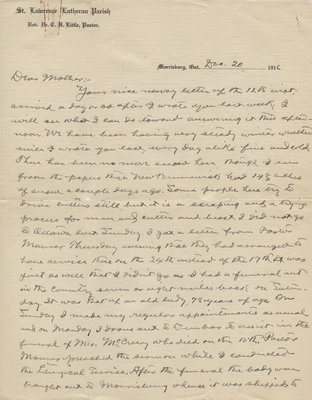 St. Lawrence Lutheran Parish
Rev. Dr. C. H. Little, Pastor.
Morrisburg, Ont. Dec. 20 1916
Dear Mother:-
Your nice newsy letter of the 12th inst
arrived a day or so after I wrote you last week. I
will see what I can do toward answering it this after-
noon. We have been having very steady winter weather
since I wrote you last, every day alike fine and cold.
There has been no more snow here though I see
from the papers that New Brunswick had 14 inches
of snow a couple days ago. Some people here try to
drive cutters still but it is a scraping and a trying
process for man and cutter and beast. I did not go
to Ottawa last Sunday. I got a letter from Pastor
Maurer Thursday saying that they had arranged to
have service there on the 24th instead of the 17th. It was
just as well that I didn't go as I had a funeral out
in the country seven or eight miles back on Satur-
day. It was that of an old lady 78 years of age. On
Sunday I made my regular appointments as usual
and on Monday I drove out to Dunbar to assist in the
funeral of Mrs. McCreery who died on the 15th. Pastor
Maurer preached the sermon while I conducted
the Liturgical Service. After the funeral the body was
brought out to Morrisburg where it was shipped to